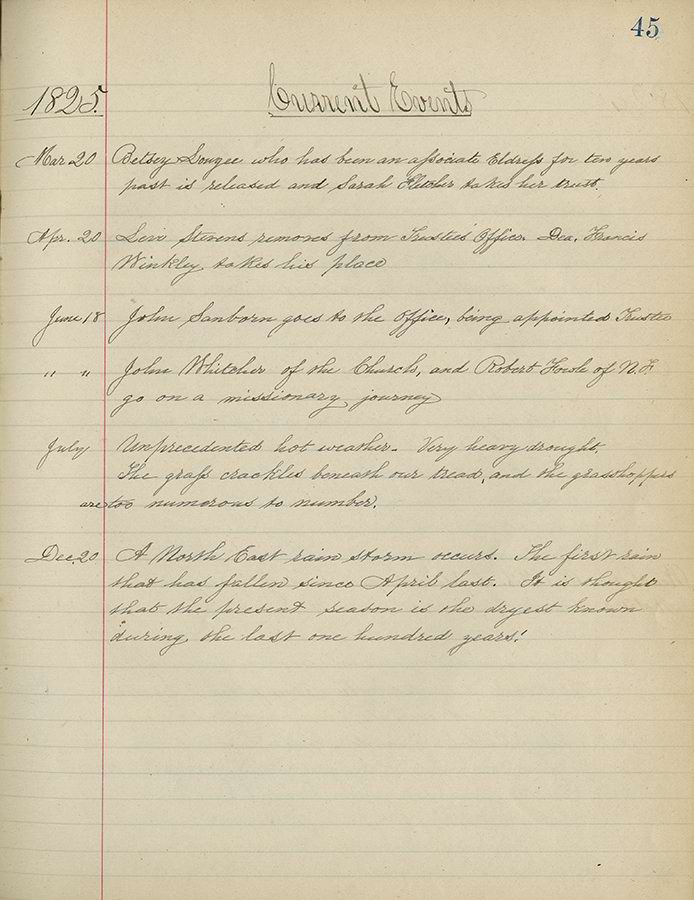 45
1825. Current Events
Mar 20 Betsey Lougee who has been an associate Eldress for ten years
past is released and Sarah Fletcher takes her trust.
Apr. 20 Levi Stevens removes from Trustees' Office. Dea. Francis
Winkley takes his place
June 18 John Sanborn goes to the Office, being appointed Trustee
" " John Whitcher of the Church, and Robert Fowle of N.F.
go on a missionary journey
July Unprecedented hot weather. Very heavy drought.
The grass crackles beneath our tread, and the grasshoppers
are too numerous to number.
Dec. 20 A North East rain storm occurs. The first rain
that has fallen since April last. It is thought
that the present season is the dryest known
during the last one hundred years!